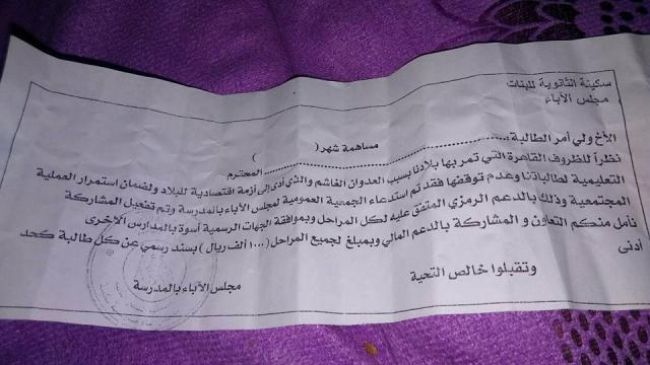 سكينة الثانوية للبنات
مجلس الآباء
مساهمة شهر( )
الأخ ولي أمر الطالبة:.......................................... المحترم
نظراً للظروف القاهرة التي تمر بها بلادنا بسبب العدوان الغاشم والذي أدى إلى أزمة اقتصادية للبلاد ولضمان استمرار العملية
التعليمية لطالباتنا وعدم توقفها فقد تم استدعاء الجمعية العمومية لمجلس الآباء بالمدرسة وتم تفعيل المشاركة
المجتمعية وذلك بالدعم الرمزي المتفق عليه لكل المراحل وبموافقة الجهات الرسمية أسوة بالمدارس الأخرى
نأمل منكم التعاون و المشاركة بالدعم المالي وبمبلغ لجميع المراحل (١٠٠٠ ألف ريال) بسند رسمي عن كل طالبة كحد
أدنى
وتقبلوا خالص التحية
مجلس الآباء بالمدرسة